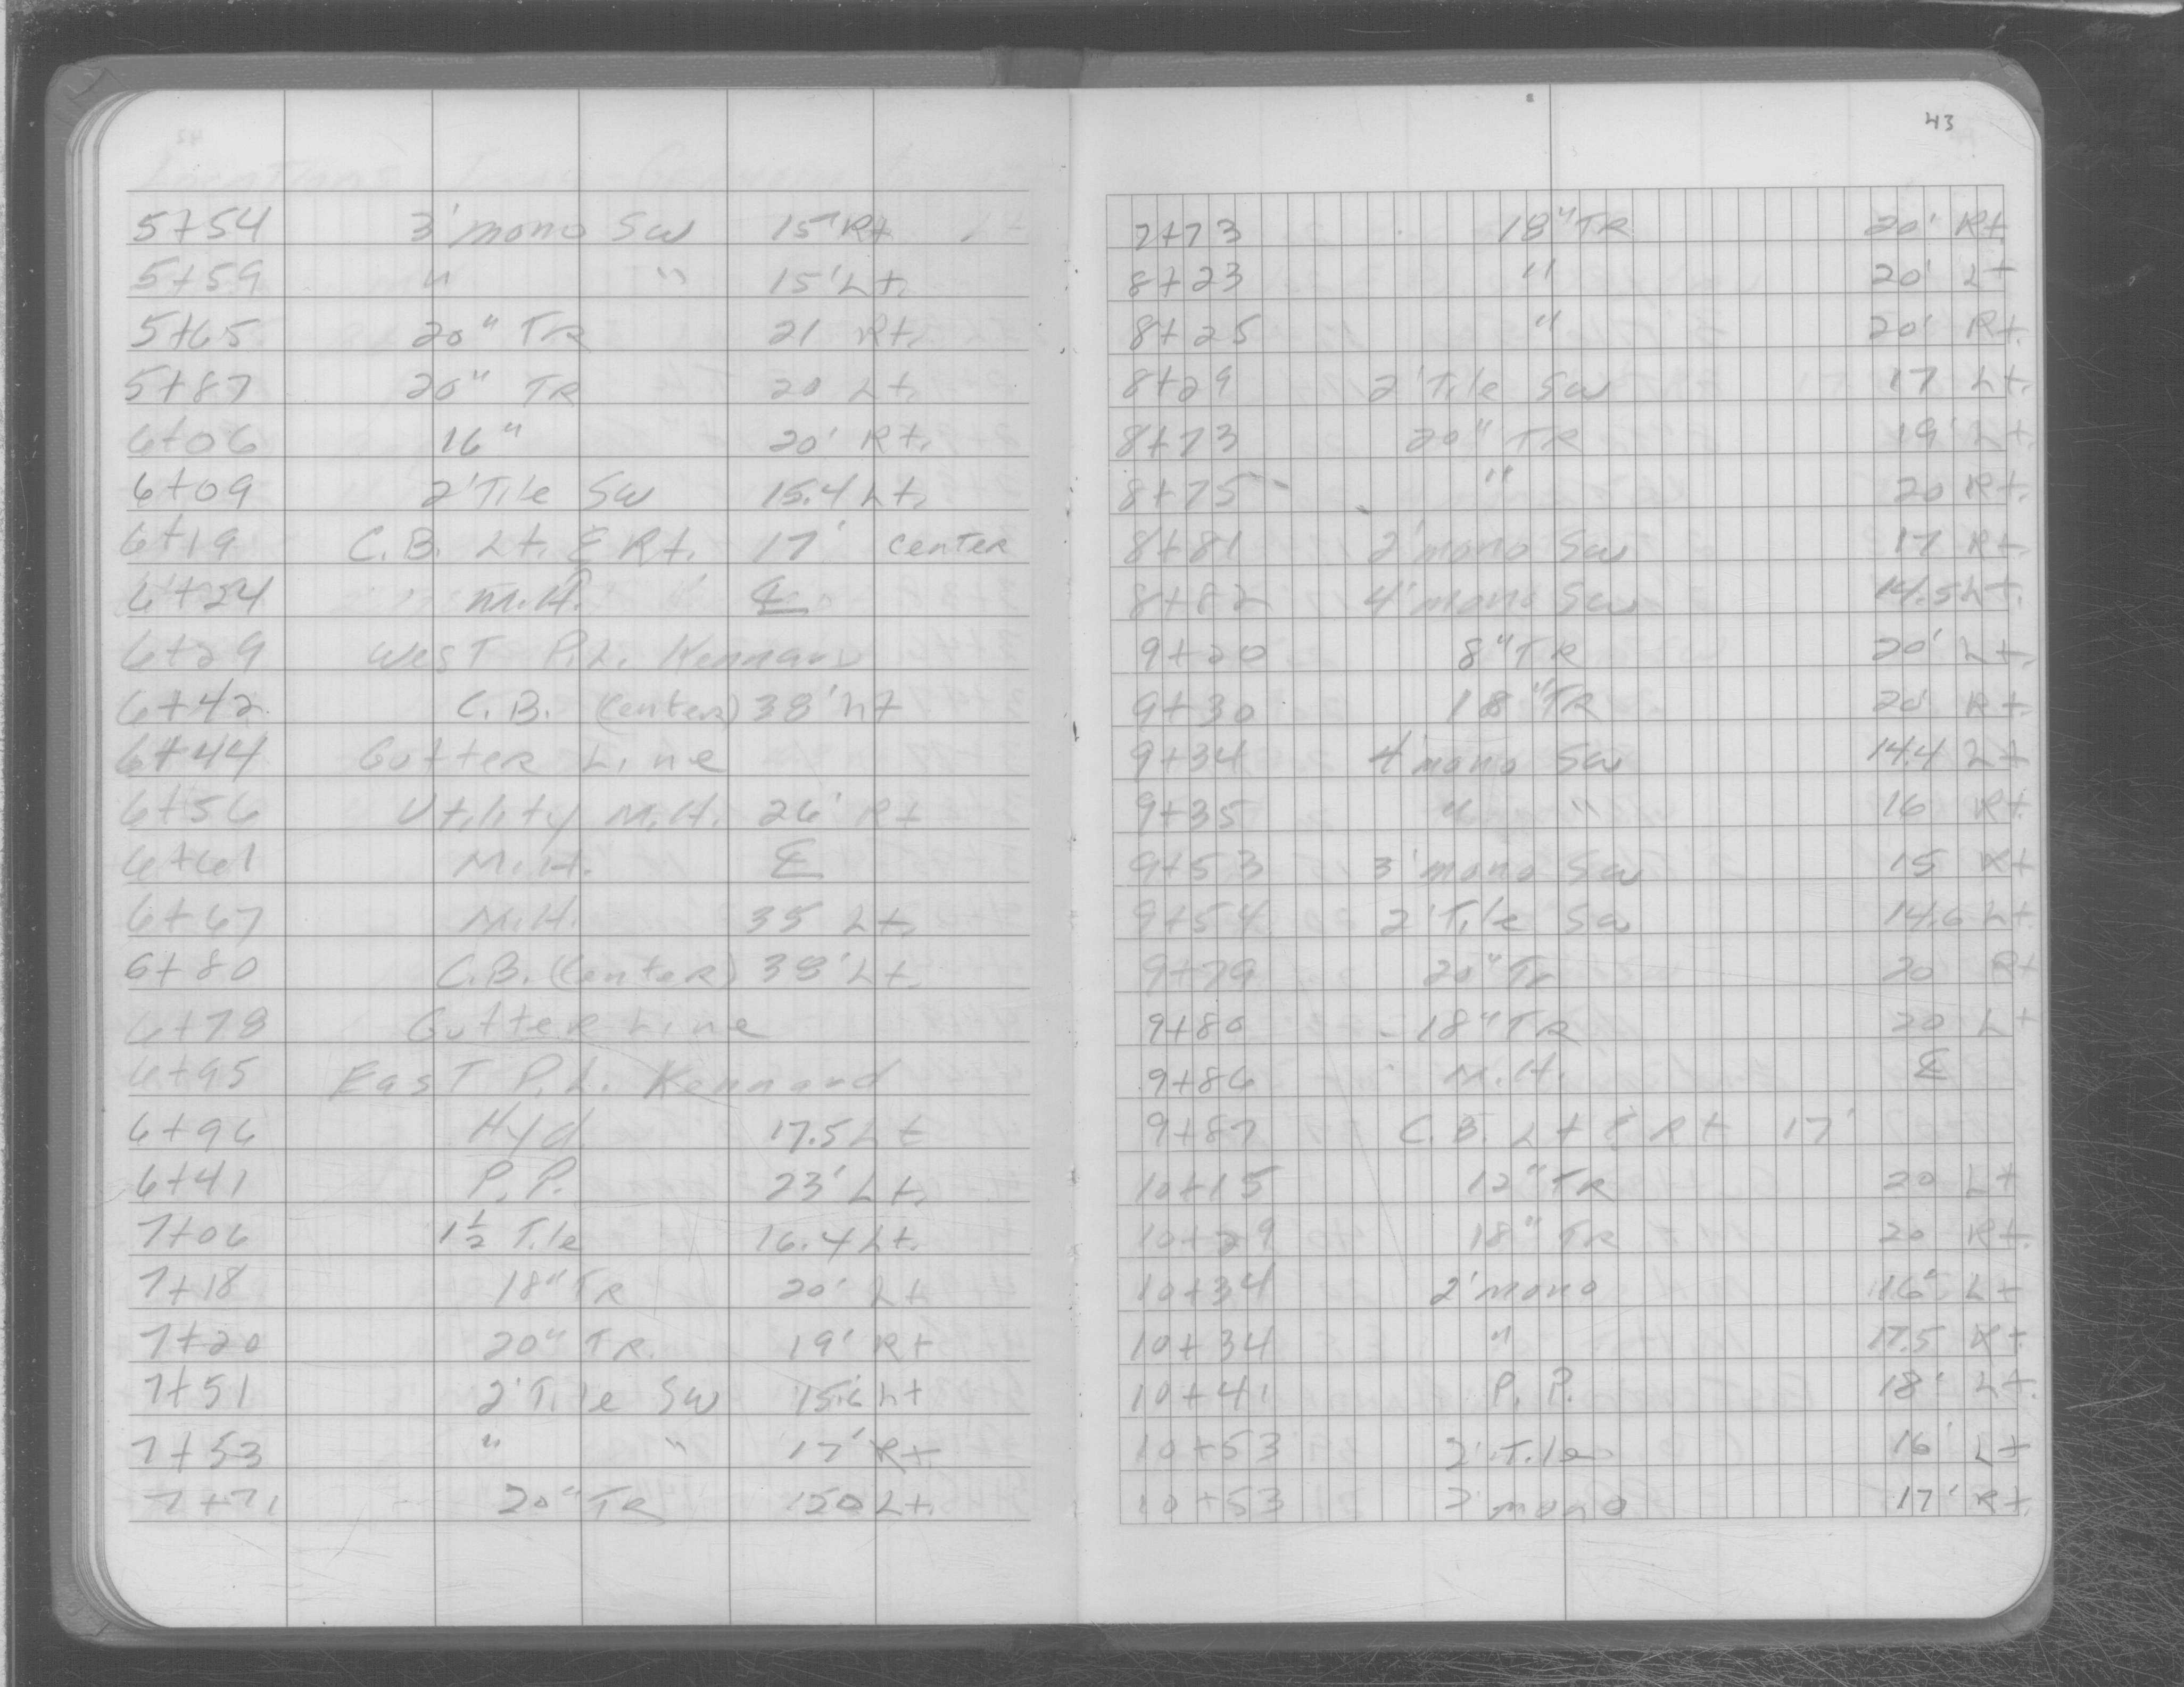 5+54 3' mono SW 15' Rt
5+59 " " 15' Lt.
5+65 20" TR 21 Rt.
5+87 20" TR 20 Lt.
6+06 16" 20' Rt.
6+09 2' Tile SW 15.4 Lt.
6+19 C.B. Lt. & Rt. 17' Center
6+24 M.H. ℄
6+29 West P.L. Kennard
6+42 C.B. (Center) 38' Lt
6+44 Gutter Line
6+56 Utility M.H. 26' Rt
6+61 M.H. ℄
6+67 M.H. 35 Lt.
6+80 C.B. (Center) 38' Lt.
6+78 Gutter Line
6+95 East P.L. Kennard
6+96 Hyd. 17.5 Lt
6+41 P.P. 23' Lt.
7+06 1½ Tile 16.4 Lt.
7+18 18" TR 20' Lt
7+20 20" TR. 19' Rt
7+51 2' Tile SW 15.6 Lt
7+53 " " 17' Rt
7+71 20" TR Lt.
43
7+73 18" TR 20' Rt.
8+23 " 20' Lt
8+25 " 20' Rt.
8+29 2' Tile SW 17 Lt.
8+73 20" TR 19' Lt.
8+75 " 20 Rt.
8+81 2' mono SW 17 Rt.
8+82 4' mono SW 14.5 Lt.
9+20 8" TR 20' Lt.
9+30 18" TR 20' Rt.
9+34 4' mono SW 14.4 Lt
9+35 " " 16 Rt.
9+53 3' mono SW 15 Rt
9+54 2' Tile SW 14.6 Lt.
9+79 20" Tr 20 Rt
9+80 18" TR 20 Lt
9+86 M.H. ℄
9+87 C.B. Lt & Rt 17'
10+15 12" TR 20 Lt
10+29 18" TR 20 Rt.
10+34 2' mono 16' Lt
10+34 " 17.5 Rt.
10+41 P.P. 18' Lt.
10+53 2' Tile 16' Lt
10+53 2' mono 17' Rt.